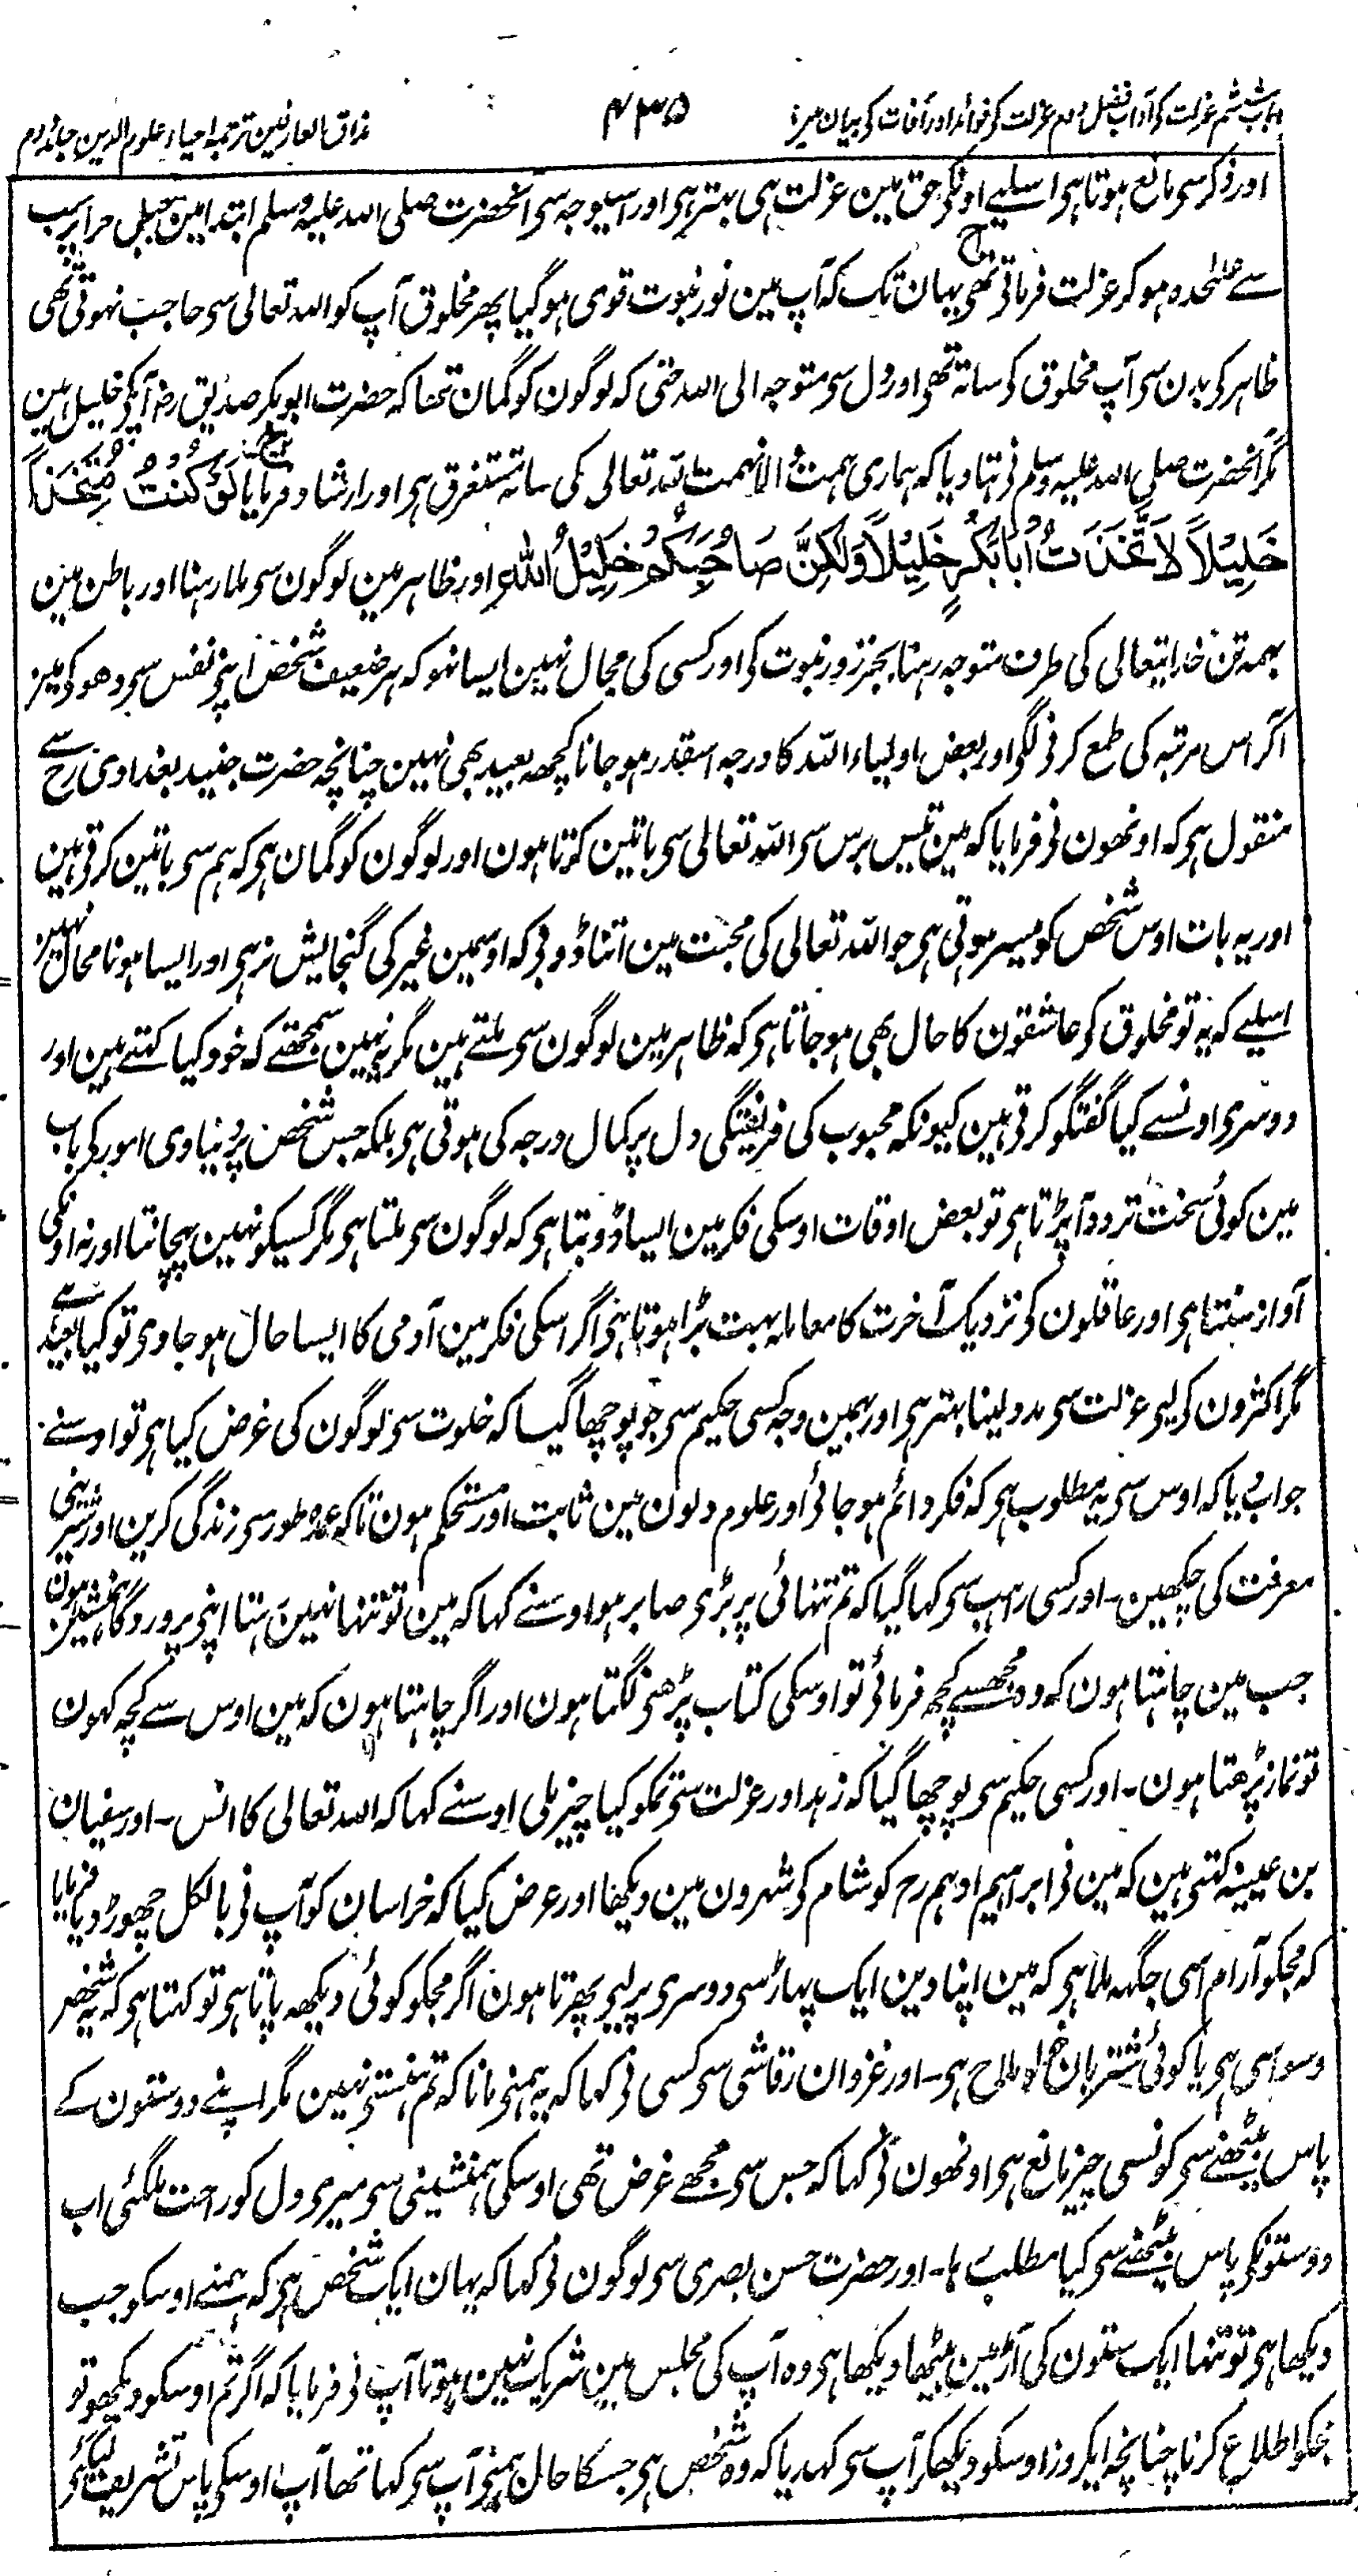 باب ششم عزلت کی آداب فصل دوم عزلت کی فوائد اور آفات کی بیان مین
۴۳۵
مذاق العارفین ترجمہ احیاء علوم الدین جلد دوم
اور ذکر سی مانع ہوتا ہی اسلیے اونکی حق مین عزلت ہی بہتر ہی اور اسیوجہ سی آنحضرت صلی اللہ علیہ وسلم ابتدا مین جبل حرا پر سب
سے علٰحدہ ہو کر عزلت فرماتی تھی یہان تک کہ آپ مین نور نبوت قوی ہو گیا پھر مخلوق آپ کو اللہ تعالی سی حاجب نہوتی تھی
ظاہر کی بدن سی آپ مخلوق کی ساتہ تھی اور دل سی متوجہ الی اللہ حتی کہ لوگون کو گمان تھا کہ حضرت ابوبکر صدیق رض آپکی خلیل ہین
مگر آنحضرت صلی اللہ علیہ وسلم نی بتا دیا کہ ہماری ہمت والا نہمت اللہ تعالی کی ساتہ مستغرق ہی اور ارشاد فرمایا لَوْ كُنْتُ مُتَّخِذًا
خَلِیْلاً لَاتَّخَذْتُ اَبَابَكْرٍ خَلِیْلاً وَلٰكِنَّ صَاحِبَكُمْ خَلِیْلُ اللهِ اور ظاہر مین لوگون سی ملا رہنا اور باطن مین
ہمہ تن خدایتعالی کی طرف متوجہ رہنا بجز زور نبوت کی اور کسی کی مجال نہین ایسا نہو کہ ہر ضعیف شخص اپنی نفس سی دھوکی مین
آکر اس مرتبہ کی طمع کرنی لگی اور بعض اولیاء اللہ کا درجہ اسقدر ہو جانا کچھہ بعید بھی نہین چنانچہ حضرت جنید بغدادی رح سے
منقول ہی کہ اونھون نی فرمایا کہ مین تیس برس سی اللہ تعالی سی باتین کرتا ہون اور لوگون کو گمان ہی کہ ہم سی باتین کرتی ہین
اور یہ بات اوس شخص کو میسر ہوتی ہی جو اللہ تعالی کی محبت مین اتنا ڈوبی کہ اوسمین غیر کی گنجایش نرہی اور ایسا ہونا محال نہین
اسلیے کہ یہ تو مخلوق کی عاشقون کا حال بھی ہو جاتا ہی کہ ظاہر مین لوگون سی ملتے ہین مگر یہ نہین سمجھتے کہ خود کیا کہتے ہین اور
دوسری اونسے کیا گفتگو کرتی ہین کیونکہ محبوب کی فریفتگی دل پر کمال درجہ کی ہوتی ہی بلکہ جس شخص پر دنیاوی امور کی باب
مین کوئی سخت تردد آپڑتا ہی تو بعض اوقات اوسکی فکر مین ایسا ڈوبتا ہی کہ لوگون سی ملتا ہی مگر کسیکو نہین پہچانتا اور نہ اونکی
آواز سنتا ہی اور عاقلون کی نزدیک آخرت کا معاملہ بہت بڑا ہوتا ہی اگر اسکی فکر مین آدمی کا ایسا حال ہو جاوی تو کیا بعید ہے
مگر اکثرون کی لیی عزلت سی مدد لینا بہتر ہی اور بہمین وجہ کسی حکیم سی جو پوچھا گیا کہ خلوت سی لوگون کی غرض کیا ہی تو اوسنے
جواب دیا کہ اوس سی یہ مطلوب ہی کہ فکر دائم ہو جائی اور علوم دلون مین ثابت اور مستحکم ہون تاکہ عمدہ طور سی زندگی کرین اور شیرینی
معرفت کی چکھین۔ اور کسی راہب سی کہا گیا کہ تم تنہائی پر بڑی صابر ہو اوسنے کہا کہ مین تو تنہا نہین رہتا اپنی پروردگار کا ہمنشین ہون
جب مین چاہتا ہون کہ وہ مجھسے کچھ فرمائی تو اوسکی کتاب پڑھنی لگتا ہون اور اگر چاہتا ہون کہ مین اوس سے کچہ کہون
تو نماز پڑھتا ہون۔ اور کسی حکیم سی پوچھا گیا کہ زہد اور عزلت سی تمکو کیا چیز ملی اوسنے کہا کہ اللہ تعالی کا انس۔ اور سفیان
بن عیینہ کہتی ہین کہ مین نی ابراہیم ادہم رح کو شام کی شہرون مین دیکھا اور عرض کیا کہ خراسان کو آپ نی بالکل چھوڑ دیا فرمایا
کہ مجکو آرام اسی جگہہ ملا ہی کہ مین اپنا دین ایک پہاڑ سی دوسری پر لیی پھرتا ہون اگر مجکو کوئی دیکھہ پاتا ہی تو کہتا ہی کہ یہ شخص
وسواسی ہی یا کوئی شتربان یا ملاح ہی۔ اور غزوان رقاشی سی کسی نی کہا کہ یہ ہمنی مانا کہ تم ہنستی نہین مگر اپنے دوستون کے
پاس بیٹھنے سی کونسی چیز مانع ہی اونھون نی کہا کہ جس سی مجھے غرض تھی اوسکی ہمنشینی سی میری دل کو راحت ملگئی اب
دوستونکی پاس بیٹھنے سی کیا مطلب رہا۔ اور حضرت حسن بصری سی لوگون نی کہا کہ یہان ایک شخص ہی کہ ہمنے اوسکو جب
دیکھا ہی تو تنہا ایک ستون کی آڑ مین بیٹھا دیکھا ہی وہ آپ کی مجلس مین شریک نہین ہوتا آپ نی فرمایا کہ اگر تم اوسکو دیکھو تو
مجکو اطلاع کرنا چنانچہ ایکروز اوسکو دیکھکر آپ سی کہدیا کہ وہ شخص ہی جسکا حال ہمنی آپ سی کہا تھا آپ اوسکی پاس تشریف لیگئی